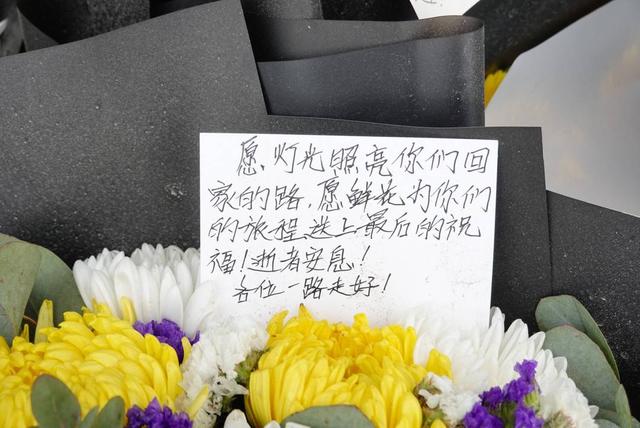 愿灯光照亮你们回
家的路,愿鲜花为你们
的旅程送上最后的祝
福!逝者安息!
各位一路走好!